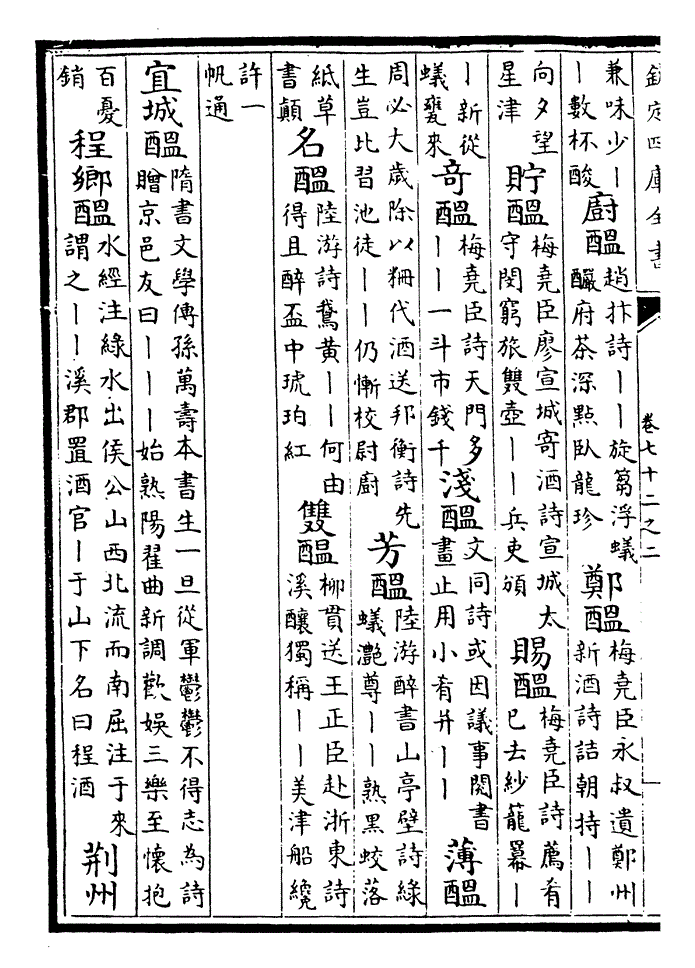 欽定四庫全書
卷七十二之二
兼味少丨
丨數杯酸
廚醞
趙抃詩丨丨旋篘浮蟻
釅府茶深點臥龍珍
鄭醞
梅堯臣永叔遺鄭州
新酒詩詰朝持丨丨
向夕望
星津
貯醞
梅堯臣廖宣城寄酒詩宣城太
守閔窮旅雙壺丨丨兵吏頒
賜醞
梅堯臣詩薦肴
已去紗籠羃丨
丨新從
蟻甕來
奇醞
梅堯臣詩天門多
丨丨一斗市錢千
淺醞
文同詩或因議事閱書
畫止用小肴并丨丨
薄醞
周必大歲除以冊代酒送邦衡詩先
生豈比習池徒丨丨仍慚校尉廚
芳醞
陸游醉書山亭壁詩綠
蟻灔尊丨丨熟黑蛟落
紙草
書顛
名醞
陸游詩鵞黄丨丨何由
得且醉盃中琥珀紅
雙醞
柳貫送王正臣赴浙東詩
溪釀獨稱丨丨美津船纔
許一
帆通
宜城醞
隋書文學傳孫萬壽本書生一旦從軍鬱鬱不得志為詩
贈京邑友曰丨丨丨始熟陽翟曲新調歡娛三樂至懷抱
百憂
銷
程鄉醞
水經注綠水出侯公山西北流而南屈注于來
謂之丨丨溪郡置酒官丨于山下名曰程酒
荆州